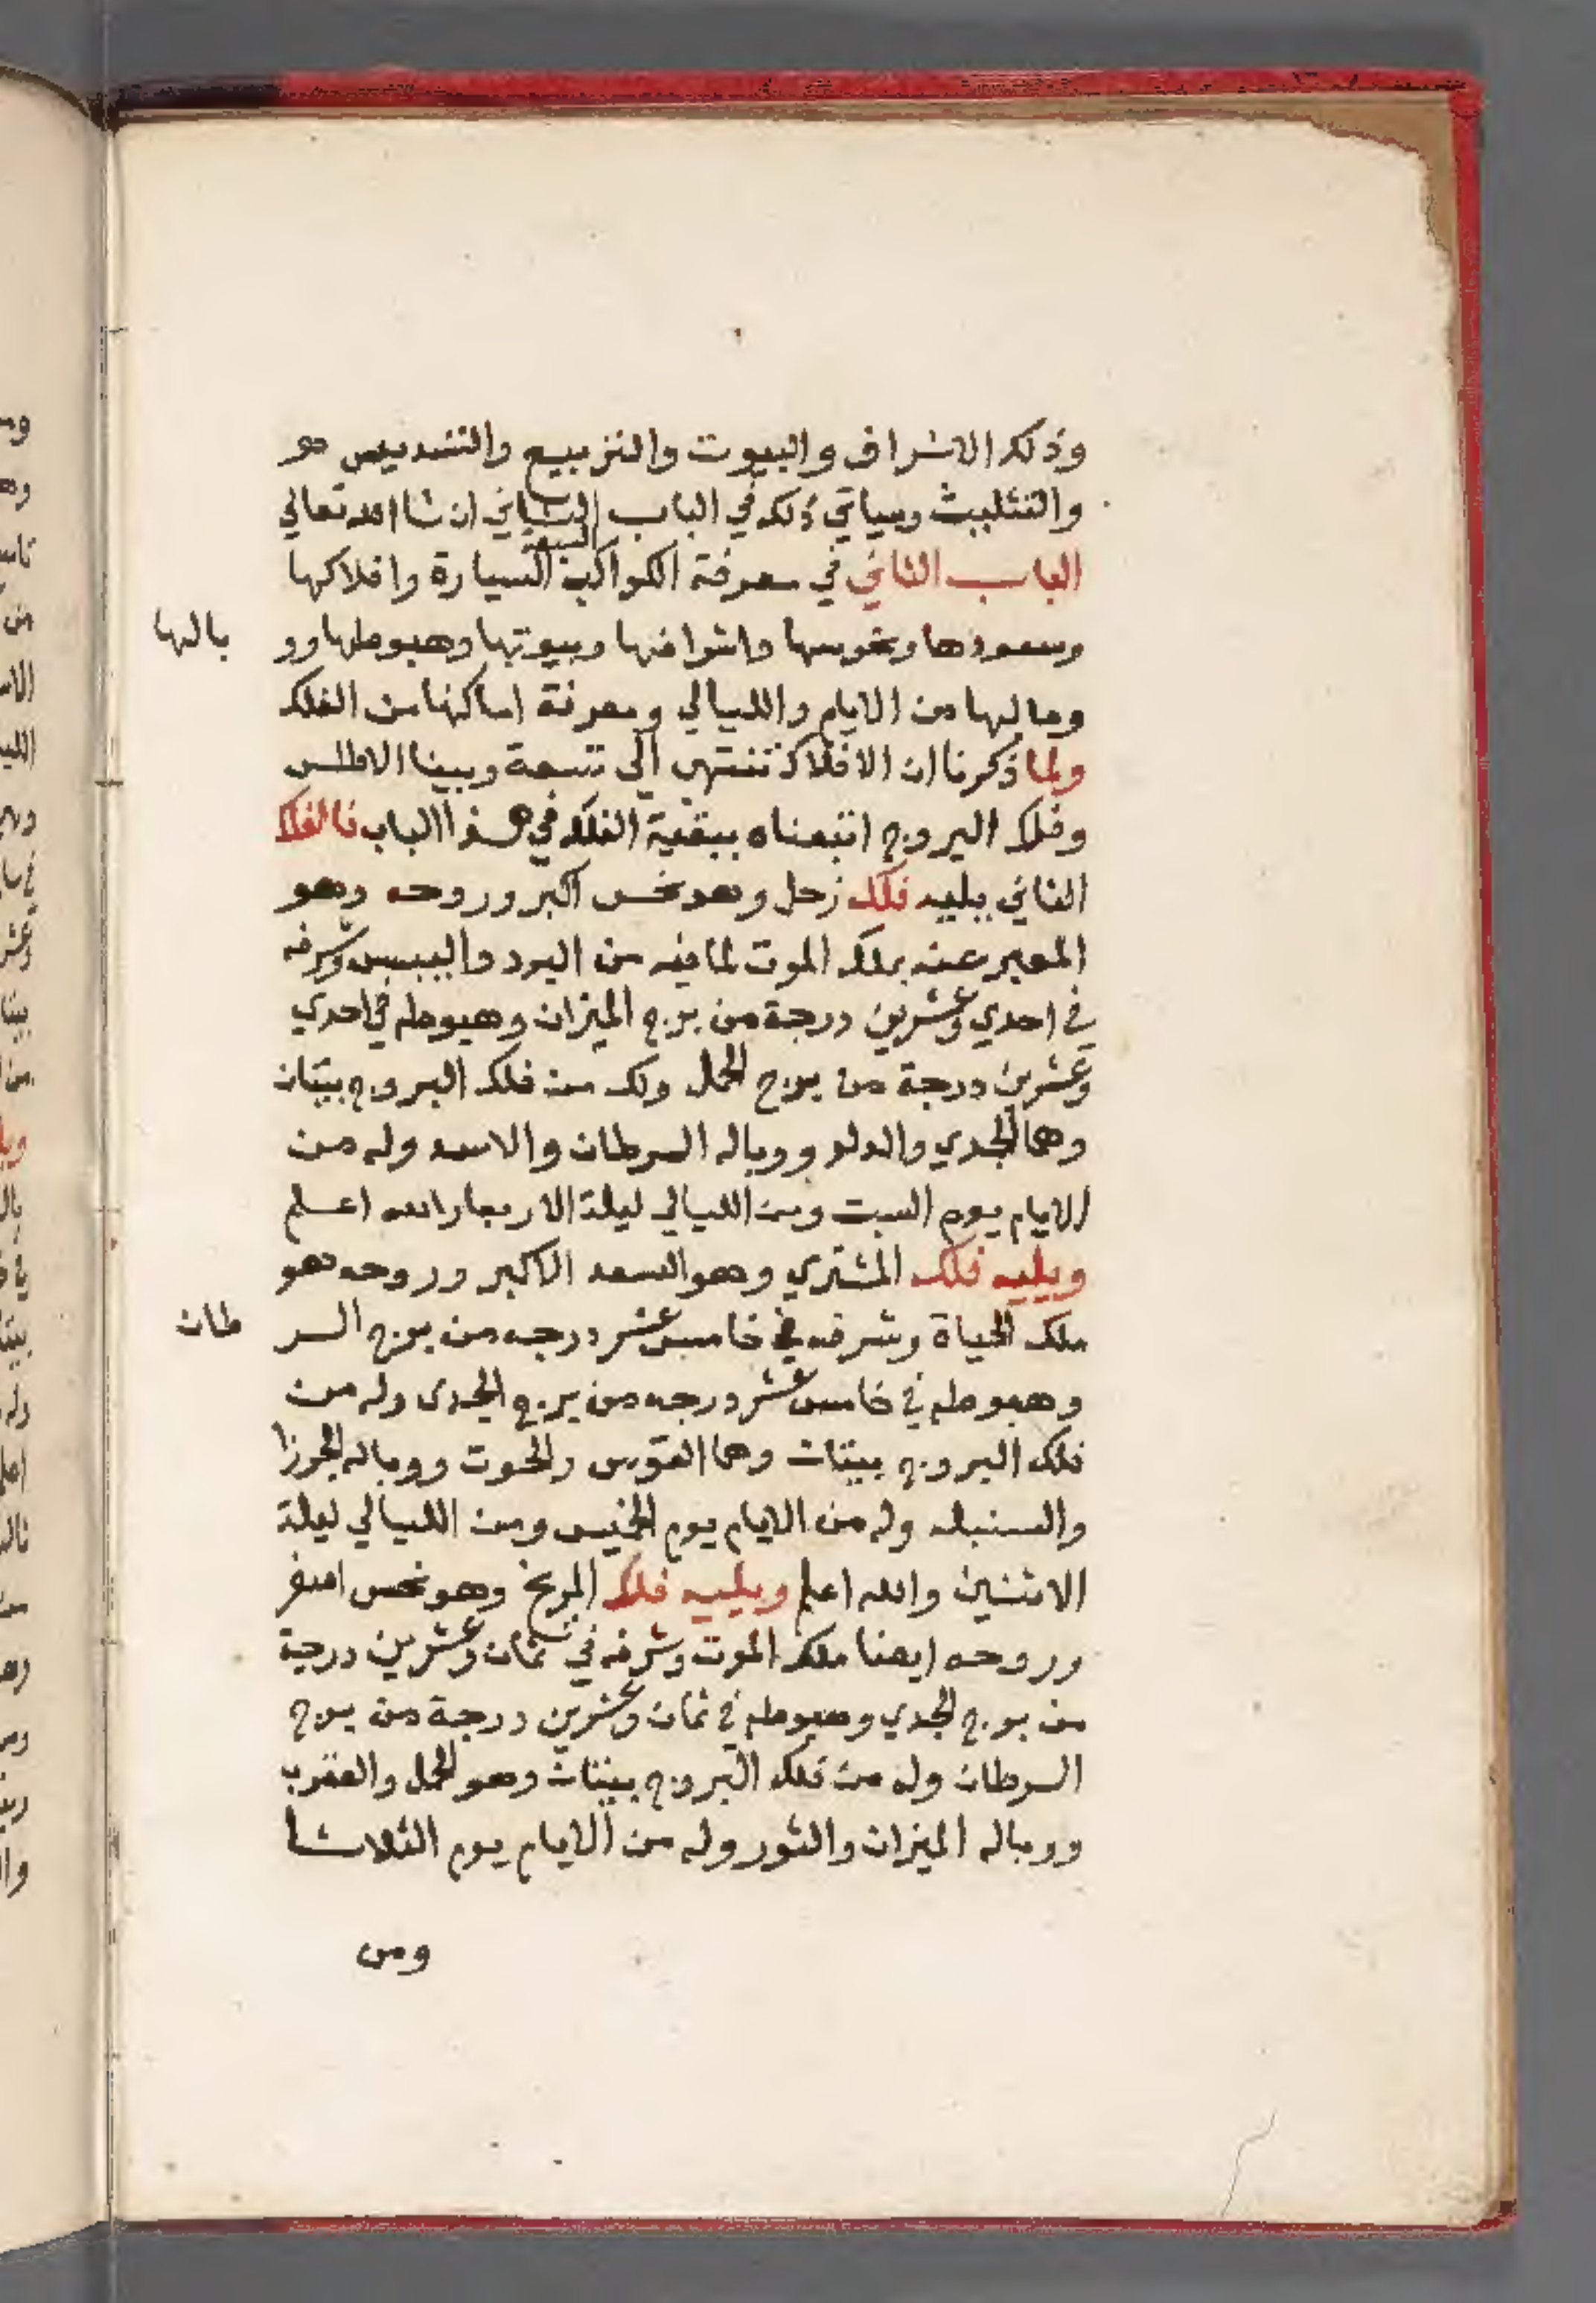 وذلك الاشراف والبيوت والتربيع والتسديس هو
والتثليث وسياتي ذلك في الباب الثاني ان شا الله تعالي
الباب الثاني في معرفة الكواكب السبعة السيارة وافلاكها
وسعودها ونحوسها واشرافها وبيوتها وهبوطها وو بالها
ومالها من الايام والليالي ومعرفة اماكنها من الفلك
ولما ذكرنا ان الافلاك تنتهي الي تسعة وبينا الاطلس
وفلك البروج اتبعناه ببقية الفلك في هذا الباب فالفلك
الثاني يليه فلك زحل وهو نحس اكبر وروحه وهو
المعبر عنه بملك الموت لما فيه من البرد واليبس وشرفه
في احدي وعشرين درجة من برج الميزان وهبوطه في احدي
وعشرين درجة من برج الحمل وله من فلك البروج بيتان
وهما الجدي والدلو ووباله السرطان والاسد وله من
الايام يوم السبت ومن الليالي ليلة الاربعا والله اعلم
ويليه فلك المشتري وهو السعد الاكبر وروحه هو
ملك الحياة وشرفه في خامس عشر درجه من برج السر طان
وهبوطه في خامس عشر درجه من برج الجدي وله من
فلك البروج بيتان وهما القوس والحوت ووباله الجوزا
والسنبله وله من الايام يوم الخميس ومن الليالي ليلة
الاثنين والله اعلم ويليه فلك المريخ وهو نحس اصغر
وروحه ايضا ملك الموت وشرفه في ثمان وعشرين درجة
من برج الجدي وهبوطه في ثمان وعشرين درجة من برج
السرطان وله من فلك البروج بيتان وهو الحمل والعقرب
ووباله الميزان والثور وله من الايام يوم الثلاثا
ومن